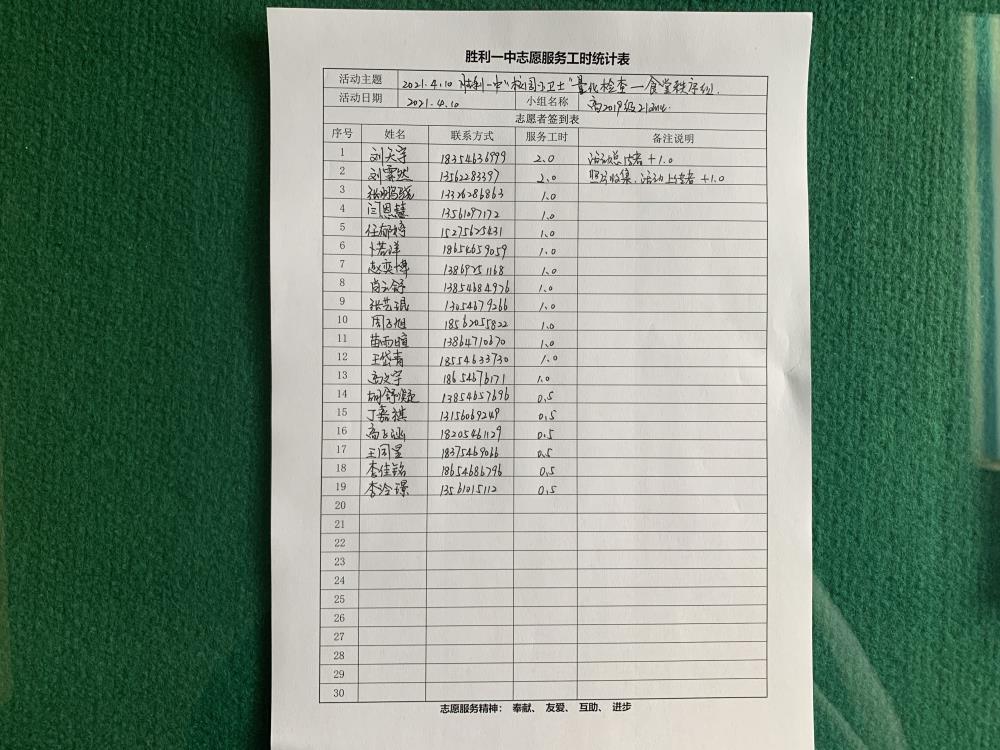 胜利一中志愿服务工时统计表
活动主题 2021.4.10 胜利一中"校园小卫士"量化检查—食堂秩序组.
活动日期 2021.4.10 小组名称 高2019级
志愿者签到表
序号 姓名 联系方式 服务工时 备注说明
1 刘天宇 18354636999 2.0 活动总结者 +1.0
2 刘霖然 13562283397 2.0 照片收集、活动上传者 +1.0
3 13326286863 1.0
4 闫恩慧 13561097172 1.0
5 任郁婷 15275625431 1.0
6 卜若洋 18654659059 1.0
7 赵奕博 13869251168 1.0
8 尚云舒 13854684976 1.0
9 张芸琨 13054679266 1.0
10 周子旭 18562055822 1.0
11 苗雨暄 13864710670 1.0
12 王岱青 18554633730 1.0
13 高文宇 18654676171 1.0
14 胡舒凝 13854657696 0.5
15 丁嘉祺 13156069249 0.5
16 高子涵 18205461129 0.5
17 王同昱 18375469066 0.5
18 李佳铭 18654686796 0.5
19 李泠璟 13561015112 0.5
20
21
22
23
24
25
26
27
28
29
30
志愿服务精神: 奉献、 友爱、 互助、 进步